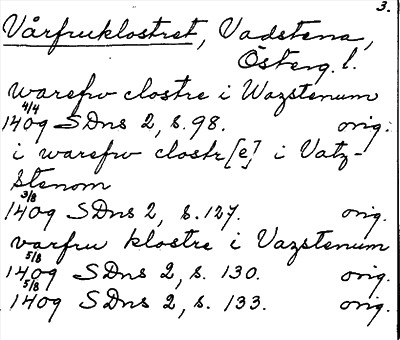 3.
Vårfruklostret, Vadstena,
Österg. l.
warefrv clostre i Wazstenum
4/4
1409 SDns 2, s. 98. orig.
i warefrv clostr[e] i Vatz-
stenom
3/8
1409 SDns 2, s. 127. orig.
varfru klostre i Vazstenum
5/8
1409 SDns 2, s. 130. orig.
5/8
1409 SDns 2, s. 133. orig.